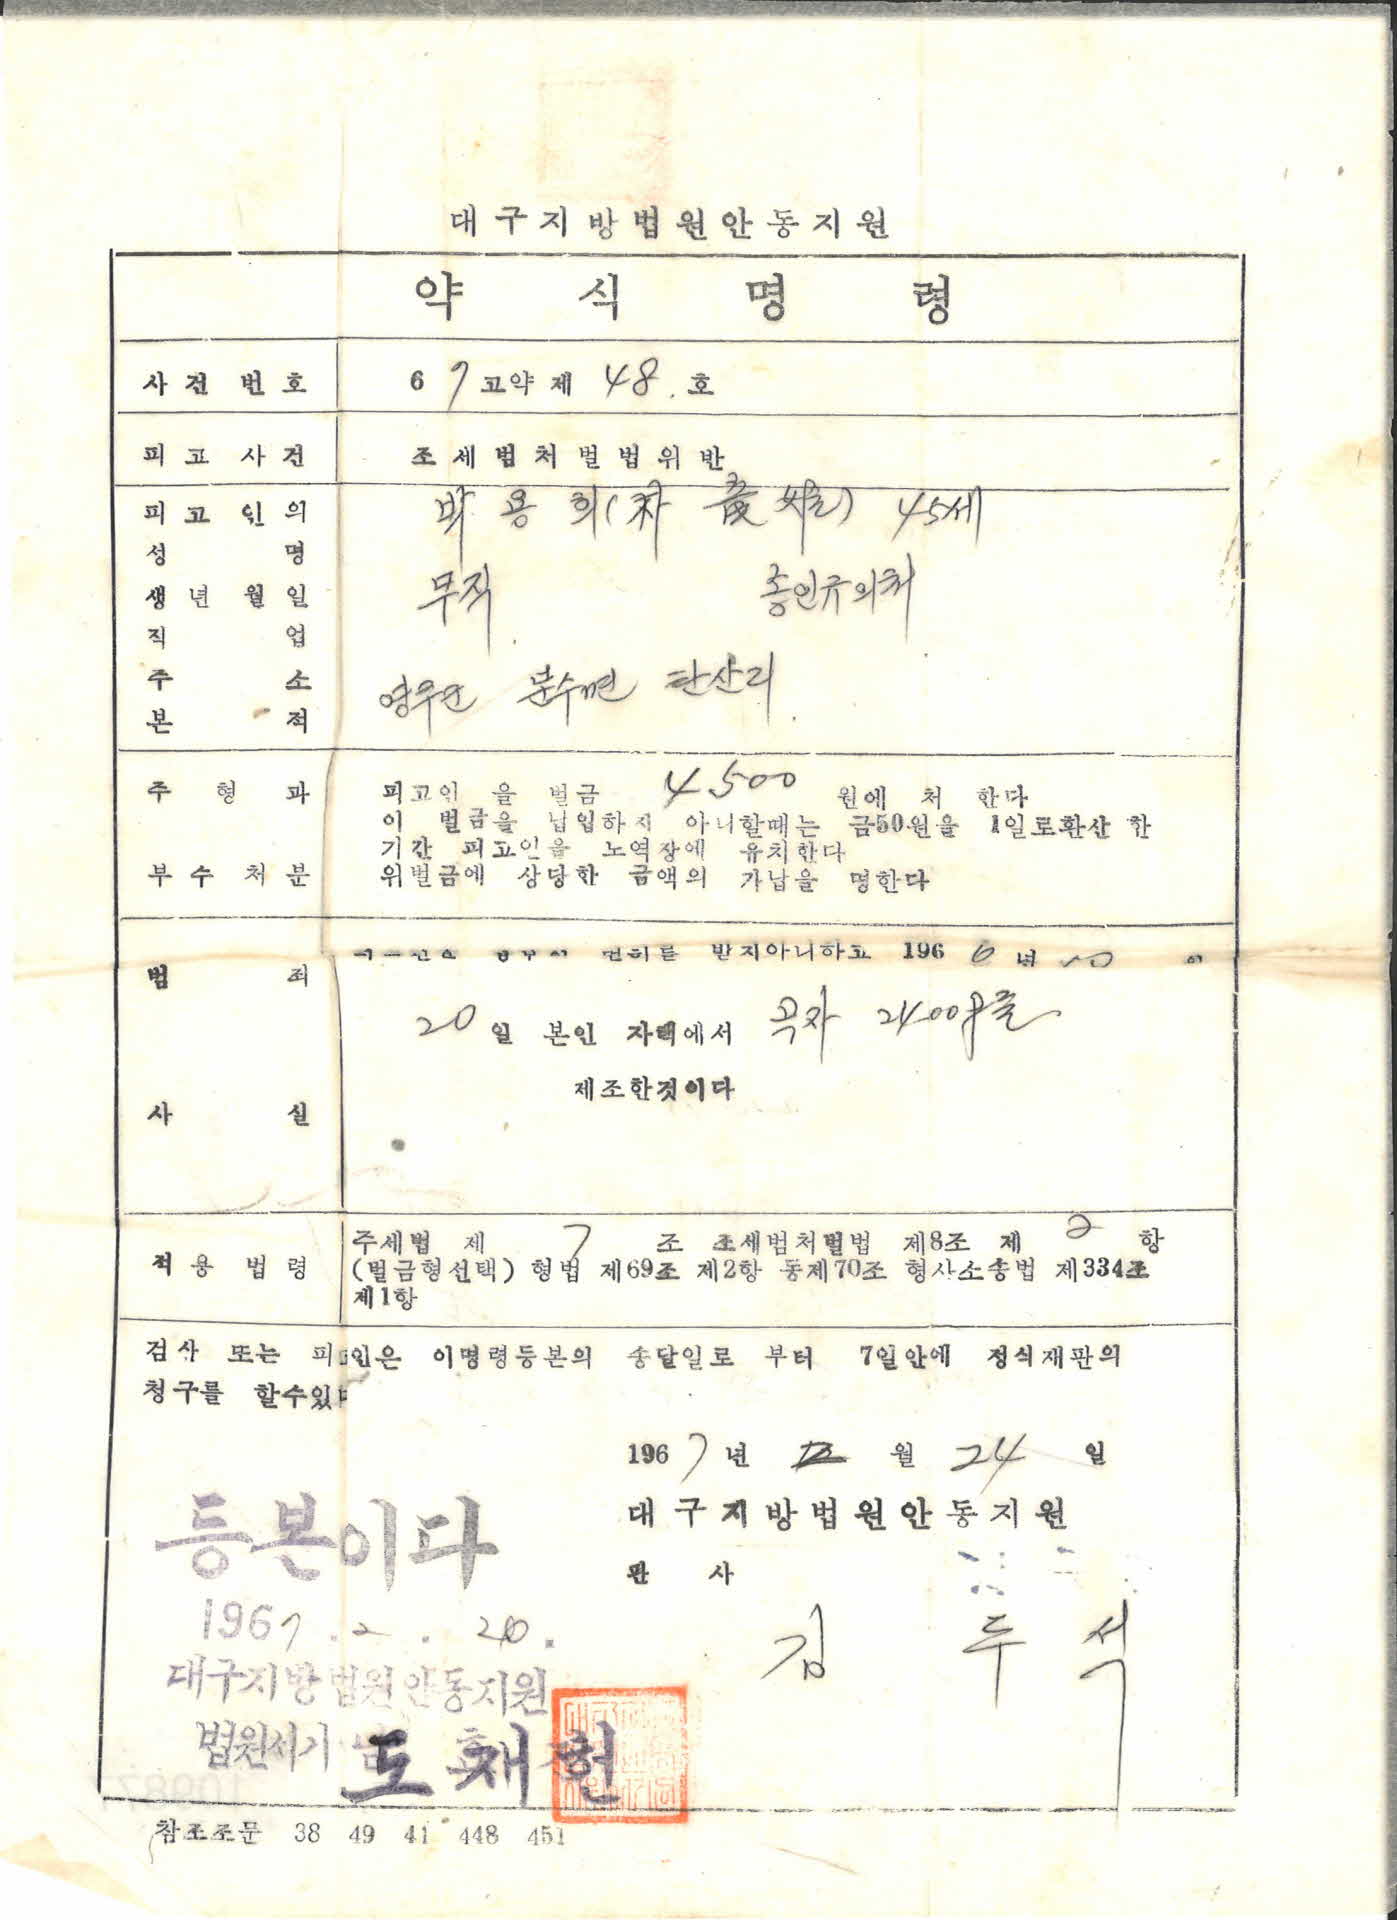 대구지방법원안동지원
약식명령
사건번호 67고약제 48.호
피고사건 조세범처벌법위반
피고인의 박용희(朴 姬) 45세
성명
생년월일 무직 송인규의처
직업
주소 영주군 문수면 탄산리
본적
주형과 피고인 을 벌금 4.500 원에 처 한다
이 벌금을 납입하지 아니할때는 금50원을 1일로환산 한
기간 피고인을 노역장에 유치한다
부수처분 위벌금에 상당한 금액의 가납을 명한다
면허를 받지아니하고 1966년 10
범죄
20일 본인 자택에서 곡자 2400
제조한것이다
사실
주세법 제 7 조 조세범처벌법 제8조 제 2 항
적용법령 (벌금형선택) 형법 제69조 제2항 동제70조 형사소송법 제334조
제1항
검사 또는 피고인은 이명령등본의 송달일로 부터 7일안에 정식재판의
청구를 할수있다
1967년 월 24 일
대구지방법원안동지원
판사
김두석
등본이다
1967.2.20.
대구지방법원안동지원
법원서기
도재헌
참조조문 38 49 41 448 451